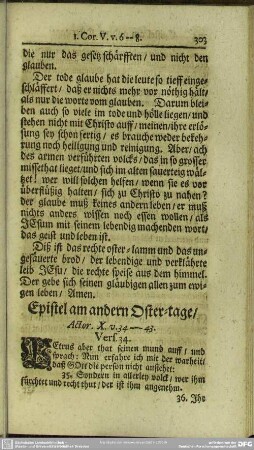 1. Cor. V. v. 6--8. 303
die nur das gesetz schärfften/ und nicht den
glauben.
Der tode glaube hat die leute so tieff einge-
schläffert/ daß er nichts mehr vor nöthig hält/
als nur die worte vom glauben. Darum blei-
ben auch so viele im tode und hölle liegen/ und
stehen nicht mit Christo auff/ meinen/ ihre erlö-
sung sey schon fertig/ es brauche weder bekeh-
rung noch heiligung und reinigung. Aber/ ach
des armen verführten volcks/ das in so grosser
missethat lieget/ und sich im alten sauerteig wäl-
tzet! wer will solchen helfen/ wenn sie es vor
überflüßig halten/ sich zu Christo zu nahen?
der glaube muß keines andern leben/ er muß
nichts anders wissen noch essen wollen/ als
JEsum mit seinem lebendig machenden wort/
das geist und leben ist.
Diß ist das rechte oster-lamm und das un-
gesäuerte brod/ der lebendige und verklährte
leib JEsu/ die rechte speise aus dem himmel.
Der gebe sich seinen gläubigen allen zum ewi-
gen leben/ Amen.
Epistel am andern Oster-tage/
Actor. X. v. 34--43.
Vers. 34.
PEtrus aber that seinen mund auff/ und
sprach: Nun erfahre ich mit der warheit/
daß GOtt die person nicht ansiehet:
35. Sondern in allerley volck/ wer ihn
fürchtet und recht thut/ der ist ihm angenehm.
36. Ihr